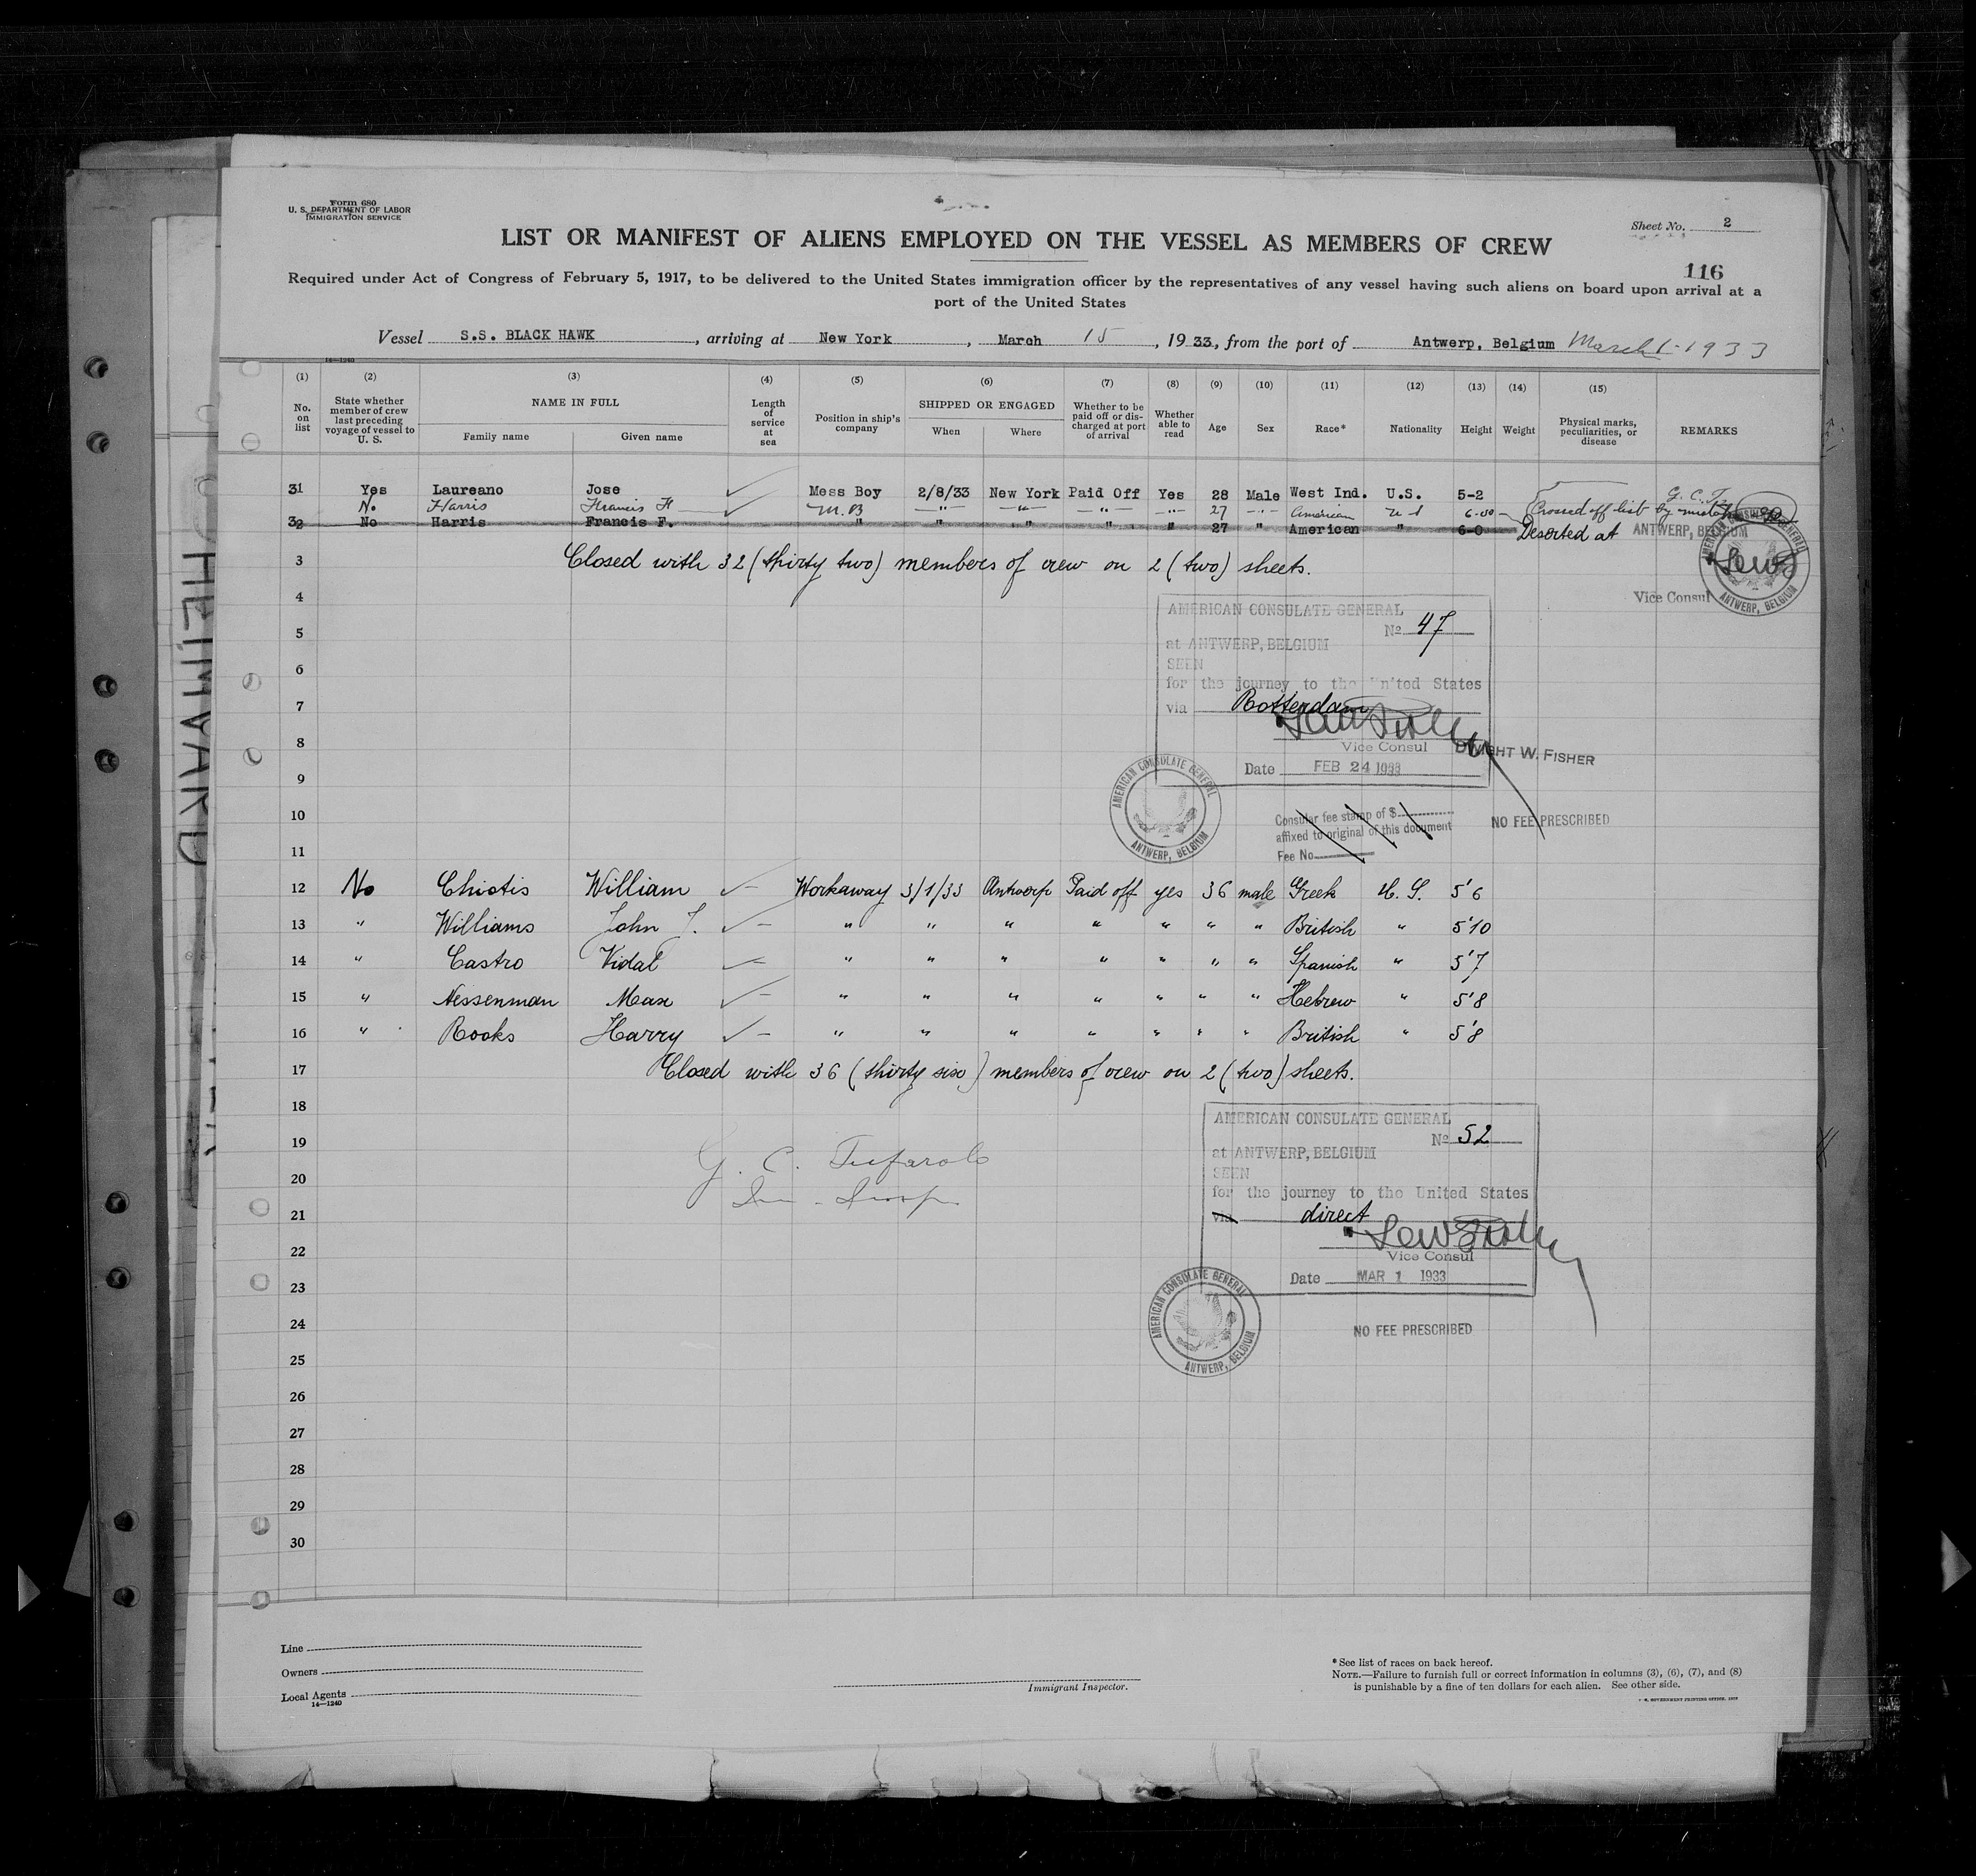 Form 680
U. S. DEPARTMENT OF LABOR
IMMIGRATION SERVICE
Sheet No. 2
LIST OR MANIFEST OF ALIENS EMPLOYED ON THE VESSEL AS MEMBERS OF CREW
116
Required under Act of Congress of February 5, 1917, to be delivered to the United States immigration officer by the representatives of any vessel having such aliens on board upon arrival at a
port of the United States
Vessel S.S. BLACK HAWK, arriving at New York, March 15, 1933, from the port of Antwerp, Belgium March 1-1933
14-1240
(1) (2) (3) (4) (5) (6) (7) (8) (9) (10) (11) (12) (13) (14) (15)
No. on list
State whether member of crew last preceding voyage of vessel to U. S.
NAME IN FULL
Family name Given name
Length of service at sea
Position in ship's company
SHIPPED OR ENGAGED
When Where
Whether to be paid off or discharged at port of arrival
Whether able to read
Age Sex Race* Nationality Height Weight
Physical marks, peculiarities, or disease
REMARKS
31 Yes Laureano Jose Mess Boy 2/8/33 New York Paid Off Yes 28 Male West Ind. U.S. 5-2
No. Harris Francis F M.B " " " " 27 " American U S 6-00 Crossed off list by mistake G. C. T.
32 No Harris Francis F. " " " " " 27 " American " 6-0 Deserted at ANTWERP, BELGIUM
3 Closed with 32 (thirty two) members of crew on 2 (two) sheets.
Vice Consul
AMERICAN CONSULATE GENERAL
ANTWERP, BELGIUM
4
5
6
7
8
9
10
11
AMERICAN CONSULATE GENERAL
No 47
at ANTWERP, BELGIUM
SEEN
for the journey to the United States
via Rotterdam
Vice Consul DWIGHT W. FISHER
Date FEB 24 1933
AMERICAN CONSULATE GENERAL
ANTWERP, BELGIUM
Consular fee stamp of $
affixed to original of this document
Fee No.
NO FEE PRESCRIBED
12 No Chiotis William Workaway 3/1/33 Antwerp Paid off yes 36 male Greek U. S. 5'6
13 " Williams John T. " " " " " " " British " 5'10
14 " Castro Vidal " " " " " " " Spanish " 5'7
15 " Nessenman Max " " " " " " " Hebrew " 5'8
16 " Rooks Harry " " " " " " " British " 5'8
17 Closed with 36 (thirty six) members of crew on 2 (two) sheets.
18
19
20
21
22
23
24
25
26
27
28
29
30
G. C. Tufarolo
AMERICAN CONSULATE GENERAL
No 52
at ANTWERP, BELGIUM
SEEN
for the journey to the United States
via direct
Vice Consul
Date MAR 1 1933
AMERICAN CONSULATE GENERAL
ANTWERP, BELGIUM
NO FEE PRESCRIBED
Line
Owners
Local Agents
14-1240
Immigrant Inspector.
* See list of races on back hereof.
NOTE.—Failure to furnish full or correct information in columns (3), (6), (7), and (8)
is punishable by a fine of ten dollars for each alien. See other side.
HEIMWARD